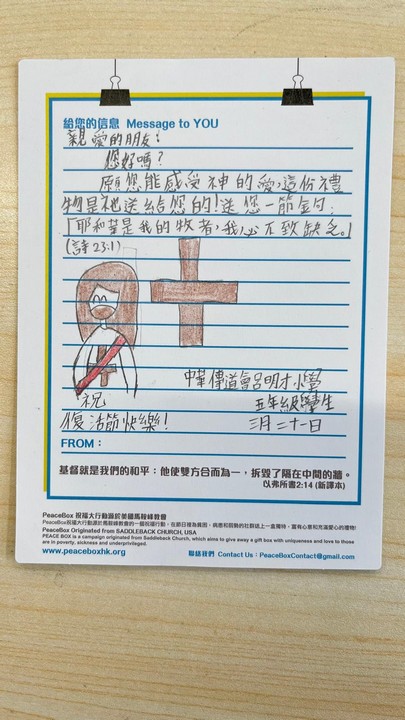 給您的信息 Message to YOU
親愛的朋友:
您好嗎?
願您能感受神的愛,這份禮
物是祂送給您的!送您一節金句:
「耶和華是我的牧者,我必不致缺乏。」
(詩23:1)
中華傳道會呂明才小學
五年級學生
祝
復活節快樂!
三月二十一日
FROM:
基督就是我們的和平:他使雙方合而為一,折毀了隔在中間的牆。
以弗所書2:14 (新譯本)
PeaceBox 祝福大行動源於美國馬鞍峰教會
PeaceBox祝福大行動源於馬鞍峰教會的一個祝福行動,在節日裡為貧困、病患和弱勢的社群送上一盒獨特,富有心意和充滿愛心的禮物!
PeaceBox Originated from SADDLEBACK CHURCH, USA
PEACE BOX is a campaign originated from Saddleback Church, which aims to give away a gift box with uniqueness and love to those
are in poverty, sickness and underprivileged.
www.peaceboxhk.org 聯絡我們 Contact Us : PeaceBoxContact@gmail.com